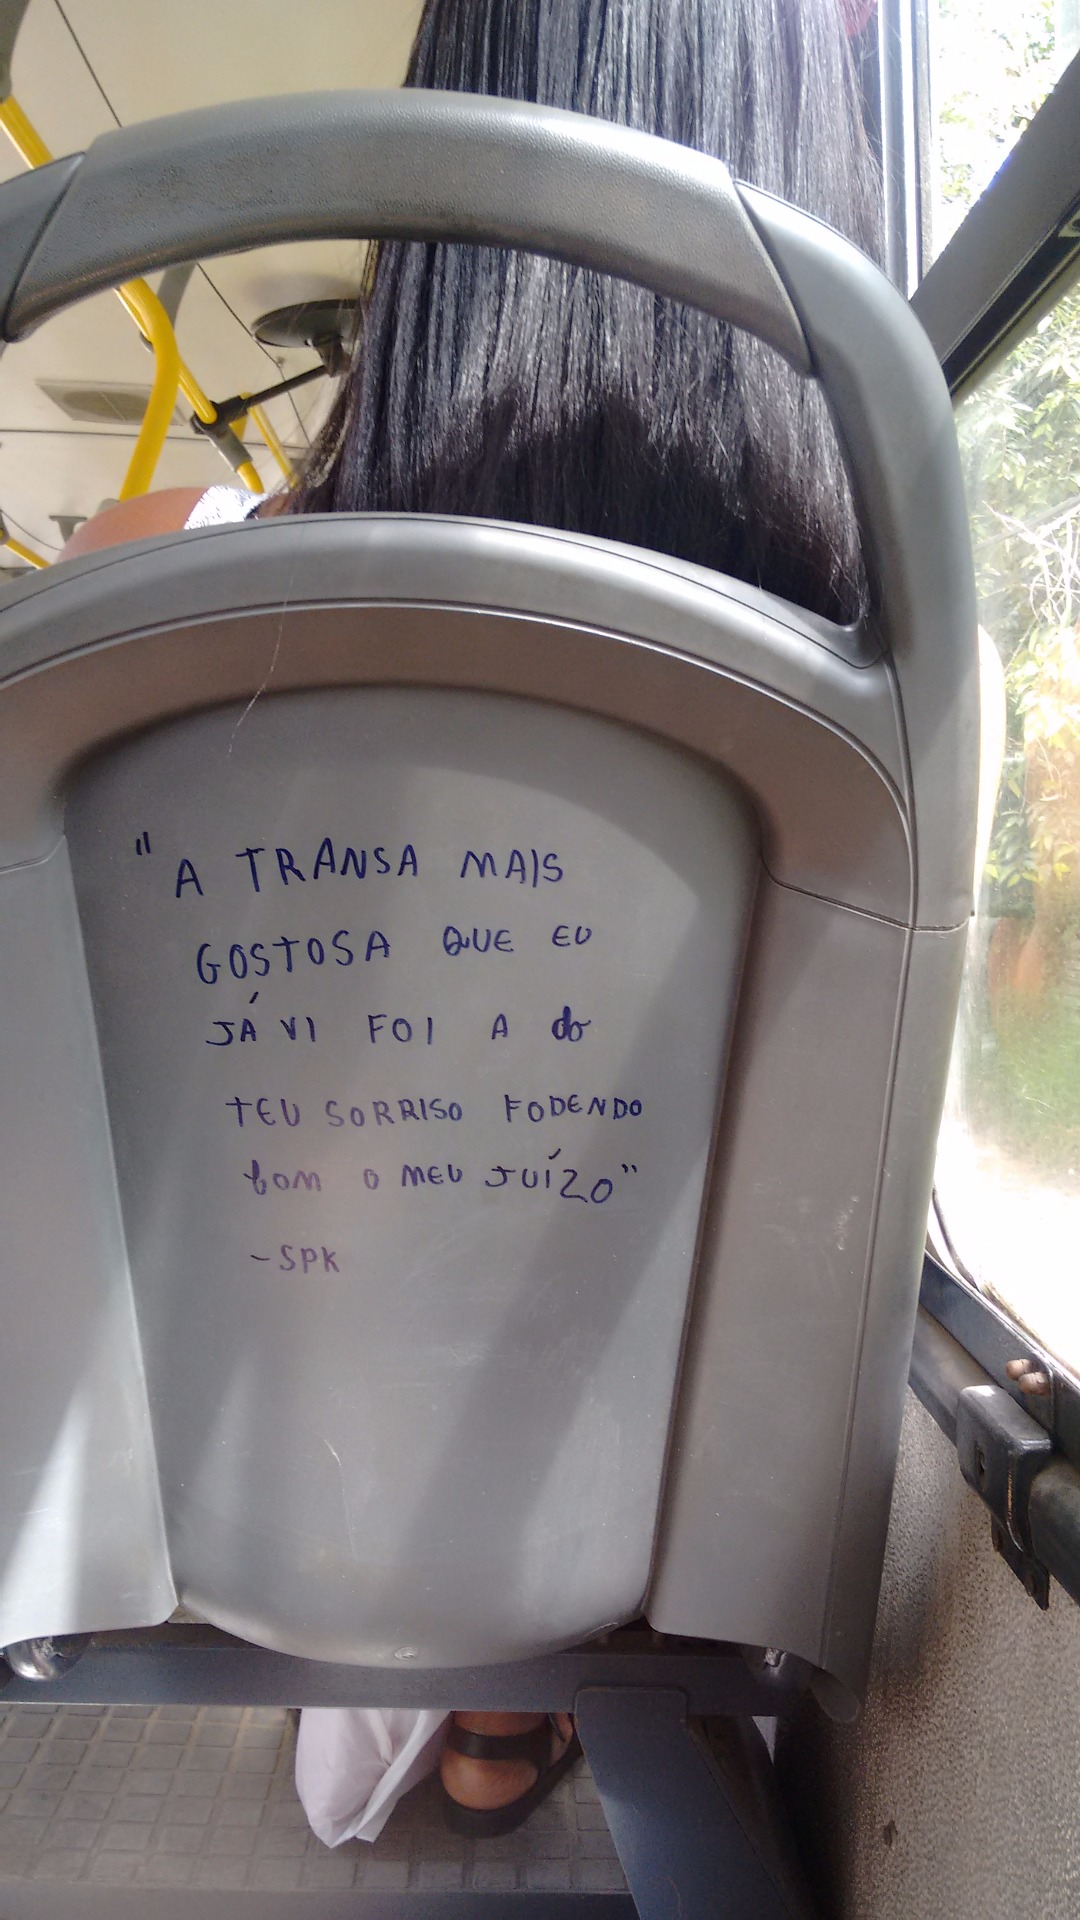 "A TRANSA MAIS
GOSTOSA QUE EU
JÁ VI FOI A do
TEU SORRISO FODENDO
com O MEU JUÍZO"
-SPK